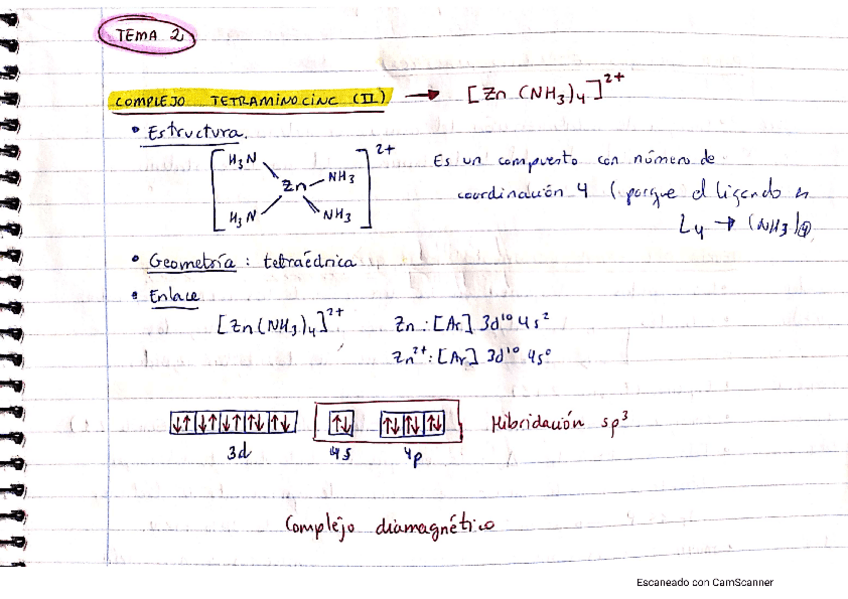 TEMA 2
COMPLEJO TETRAMINOCINC (II) → [Zn (NH3)4]2+
• Estructura.
[H3N NH3 Zn H3N NH3]2+
Es un compuesto con número de
coordinación 4 (porque el ligando es
L4 → (NH3)4
• Geometría : tetraédrica
• Enlace
[Zn(NH3)4]2+ Zn : [Ar] 3d10 4s2
Zn2+ : [Ar] 3d10 4s0
↓↑ ↓↑ ↓↑ ↑↓ ↑↓ ↑↓ ↑↓ ↑↓ ↑↓ Hibridación sp3
3d 4s 4p
Complejo diamagnético
Escaneado con CamScanner